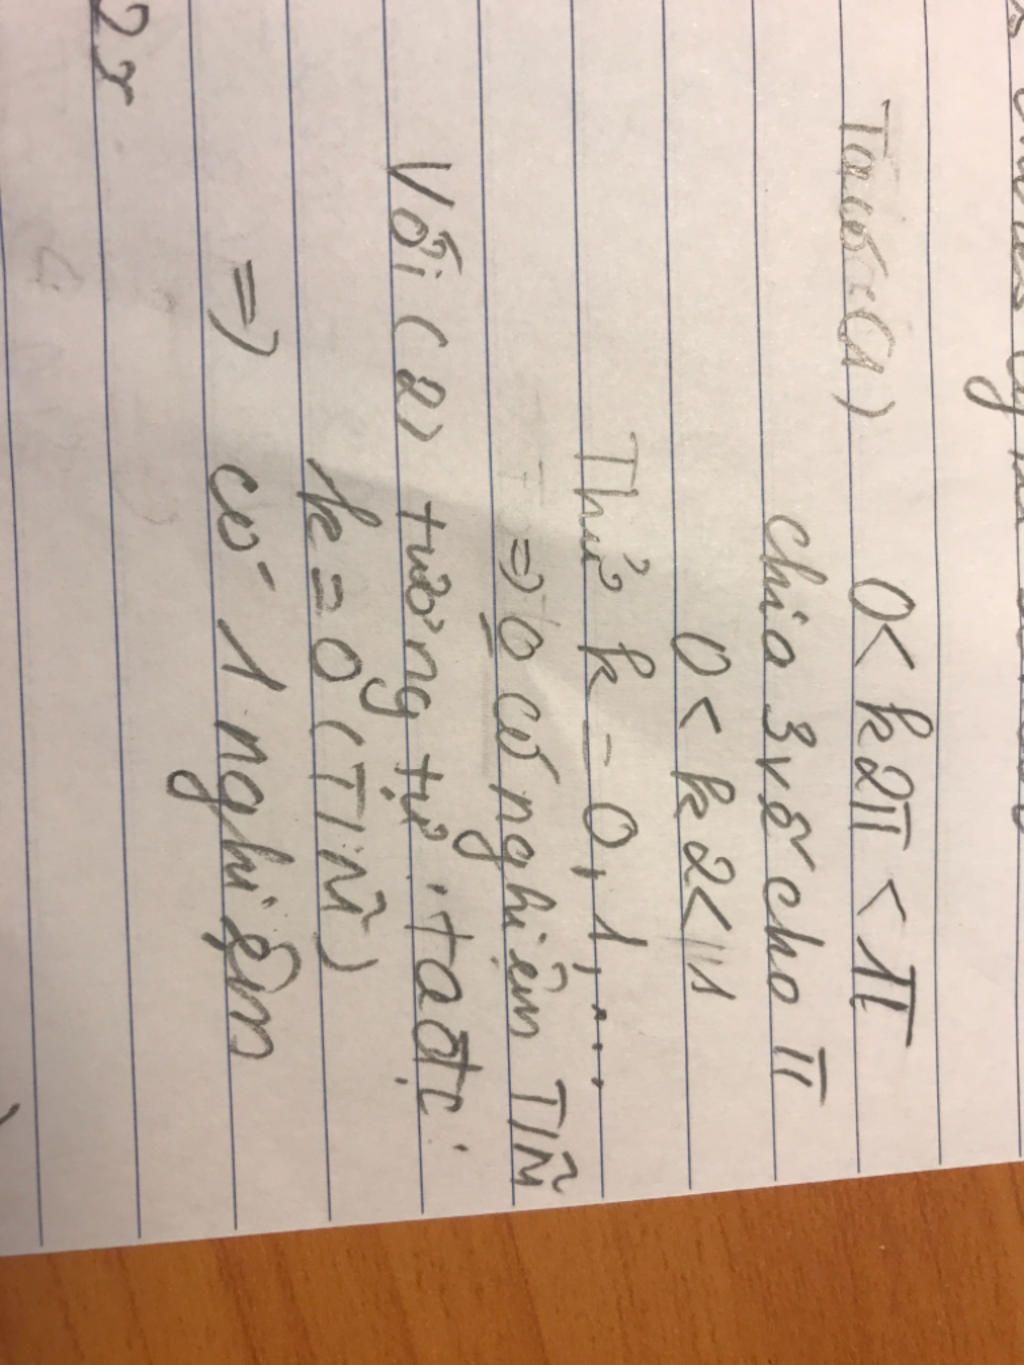 Ta có: (1) 0 < k2π < π
chia 3 vế cho π
0 < k2 < 1
Thử k = 0, 1, ...
⇒ 0 có nghiệm TM
Với (2) tương tự, ta đc:
k = 0 (TM)
⇒ có 1 nghiệm
2x